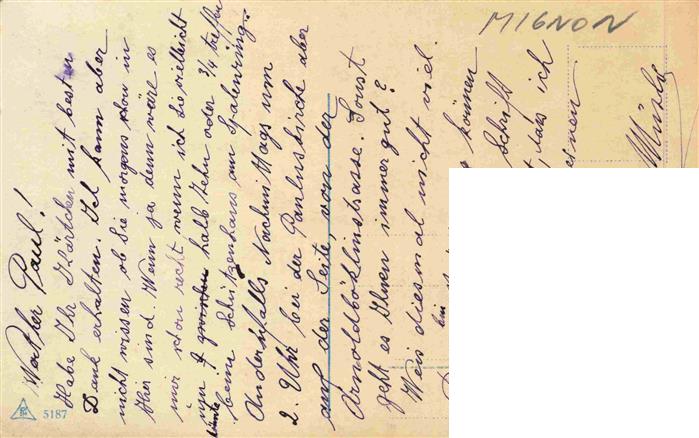 MIGNON
Werter Paul!
Habe Ihr Kärtchen mit besten
Dank erhalten. Ich kann aber
nicht wissen ob Sie morgens schon in
Hier sind. Wenn ja dann wäre es
mir schon recht wenn ich Sie vielleicht
um halb Zehn oder 3/4 treffen
könnte
beim Schützenhaus am Spalenring.
Andernfalls Nachmittags um
2. Uhr bei der Pauluskirche aber
auf der Seite, von der
Arnoldböklinstrasse. Sonst
geht es Ihnen immer gut?
Weis diesmal nicht viel.
bin
können
Schrift
, dass ich
5187